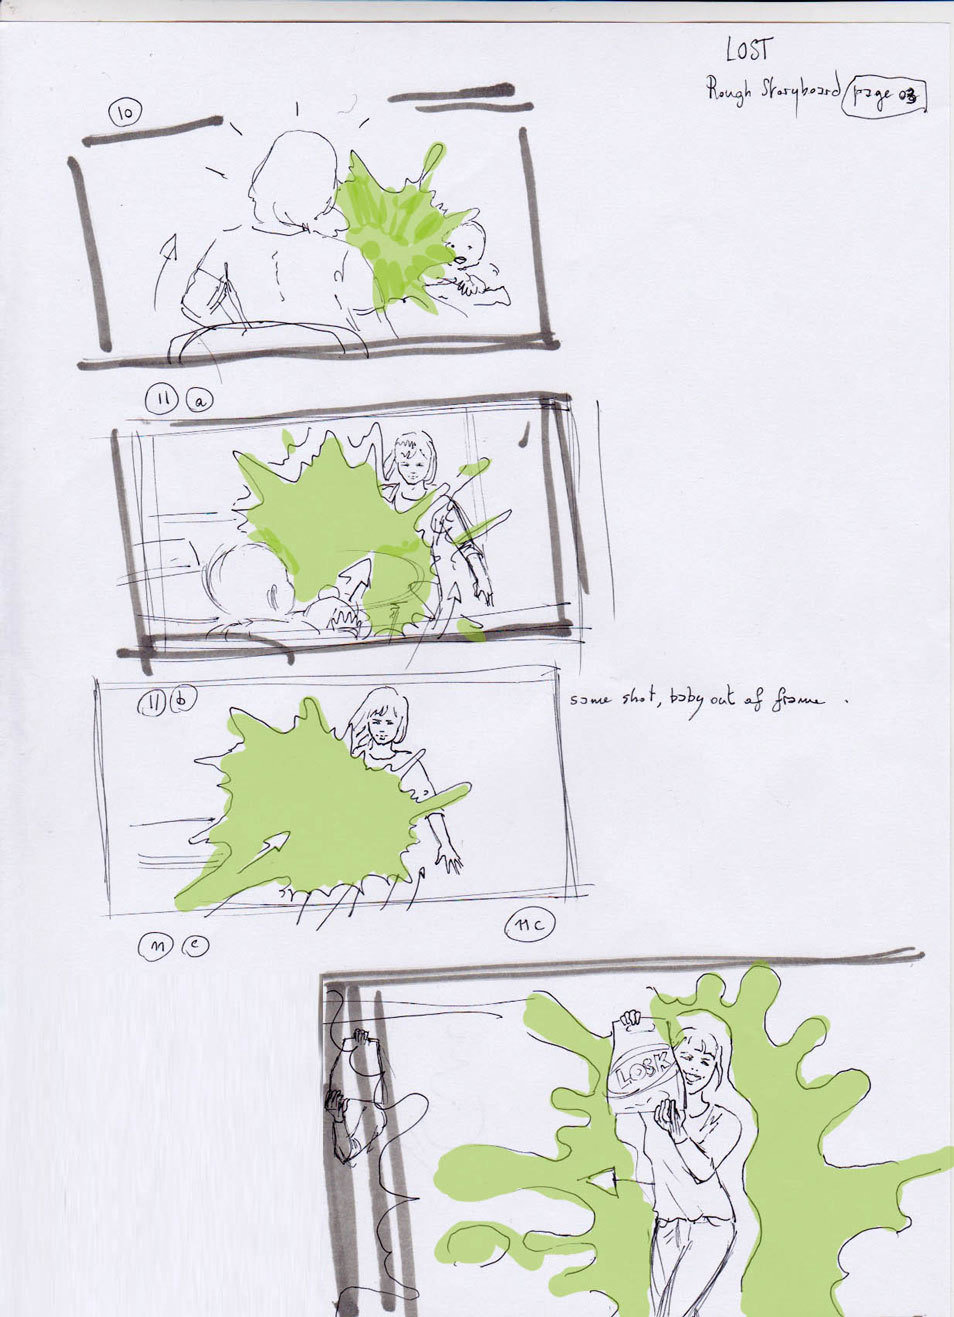 LOST
Rough Storyboard page 03
10
11 a
11 b
same shot, baby out of frame.
11 c
11 c
LOSK